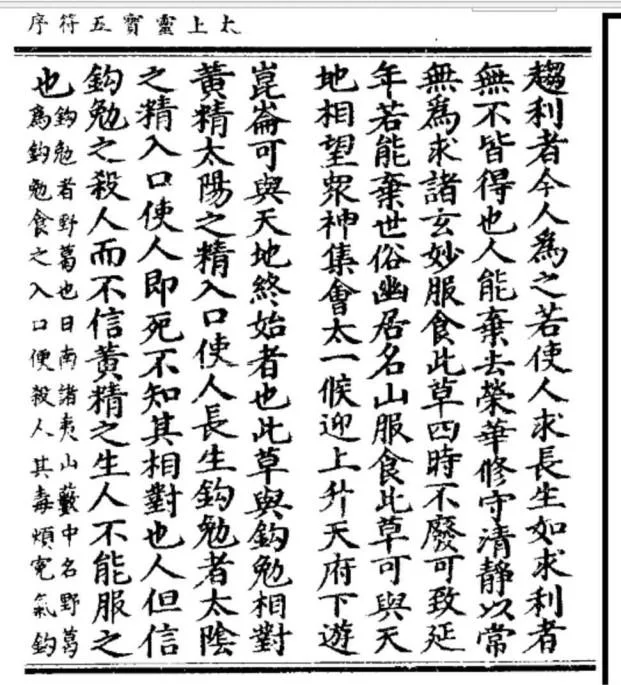 太上靈寶五符序
趨利者今人為之若使人求長生如求利者
無不皆得也人能棄去榮華修守清靜以常
無為求諸玄妙服食此草四時不廢可致延
年若能棄世俗幽居名山服食此草可與天
地相望眾神集會太一候迎上升天府下遊
崑崙可與天地終始者也此草與鈎勉相對
黃精太陽之精入口使人長生鈎勉者太陰
之精入口使人即死不知其相對也人但信
鈎勉之殺人而不信黃精之生人不能服之
也鈎勉者野葛也日南諸夷山藪中名野葛
為鈎勉食之入口便殺人其毒煩寃氣鈎